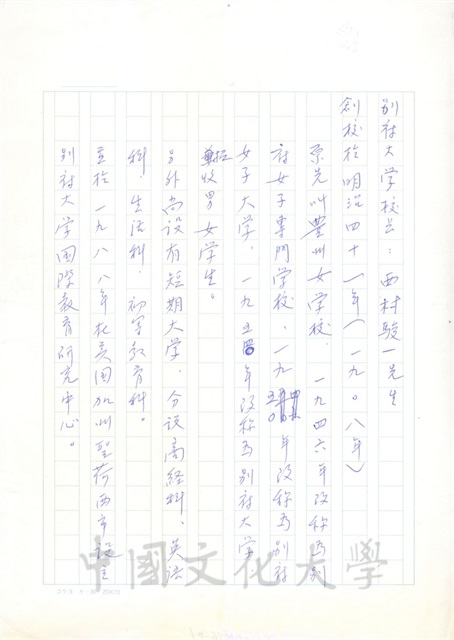 別府大学校長:西村駿一先生
創校於明治四十一年(一九○八年)
原先叫豊州女学校、一九四六年改称為別
府女子専門学校、一九五○年改称為別府
女子大学、一九五四年改称為別府大学
兼收男女学生。
另外尚設有短期大学、分設商経科、英語
科、生活科、初等教育科。
並於一九八八年在美国加州聖荷西市設立
別府大学国際教育研究中心。
中國文化大學